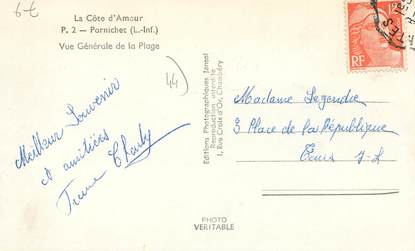 6€
La Côte d'Amour
P. 2 — Pornichet (L.-Inf.)
Vue Générale de la Plage
44
Meilleur Souvenir
et amitiés
Editions Photographiques Jansol
Reproduction interdite
1, Rue Croix d'Or, Chambéry
RF
Madame Legendre
3 Place de la République
Tours I-L
PHOTO
VERITABLE